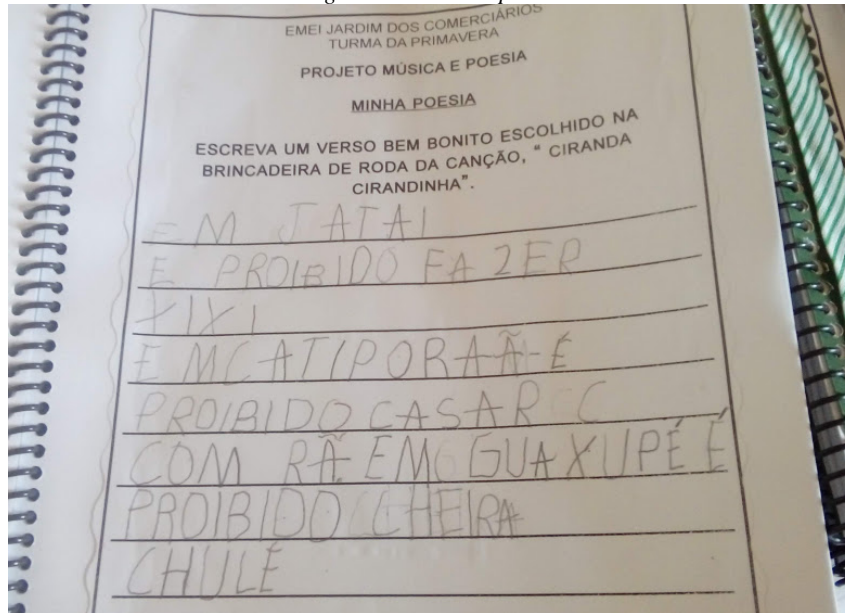 EMEI JARDIM DOS COMERCIÁRIOS
TURMA DA PRIMAVERA
PROJETO MÚSICA E POESIA
MINHA POESIA
ESCREVA UM VERSO BEM BONITO ESCOLHIDO NA
BRINCADEIRA DE RODA DA CANÇÃO, " CIRANDA
CIRANDINHA".
EM JATAI
E PROIBIDO FAZER
XIXI
EM CATIPORAÃ É
PROIBIDO CASAR C
COM RÃ. EM GUAXUPÉ É
PROIBIDO CHEIRA
CHULÉ